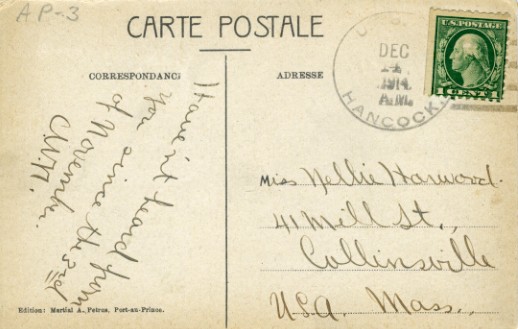 AP-3
CARTE POSTALE
CORRESPONDANC
ADRESSE
U. S.
DEC
14
1914
A.M.
HANCOCK
U.S.POSTAGE
1 CENT 1
Haven't heard from
you since the 3rd
of November.
Miss Nellie Harwood.
41 Mell St.,
Collinsville
U.S.A. Mass.,
Edition: Martial A. Petrus, Port-au-Prince.